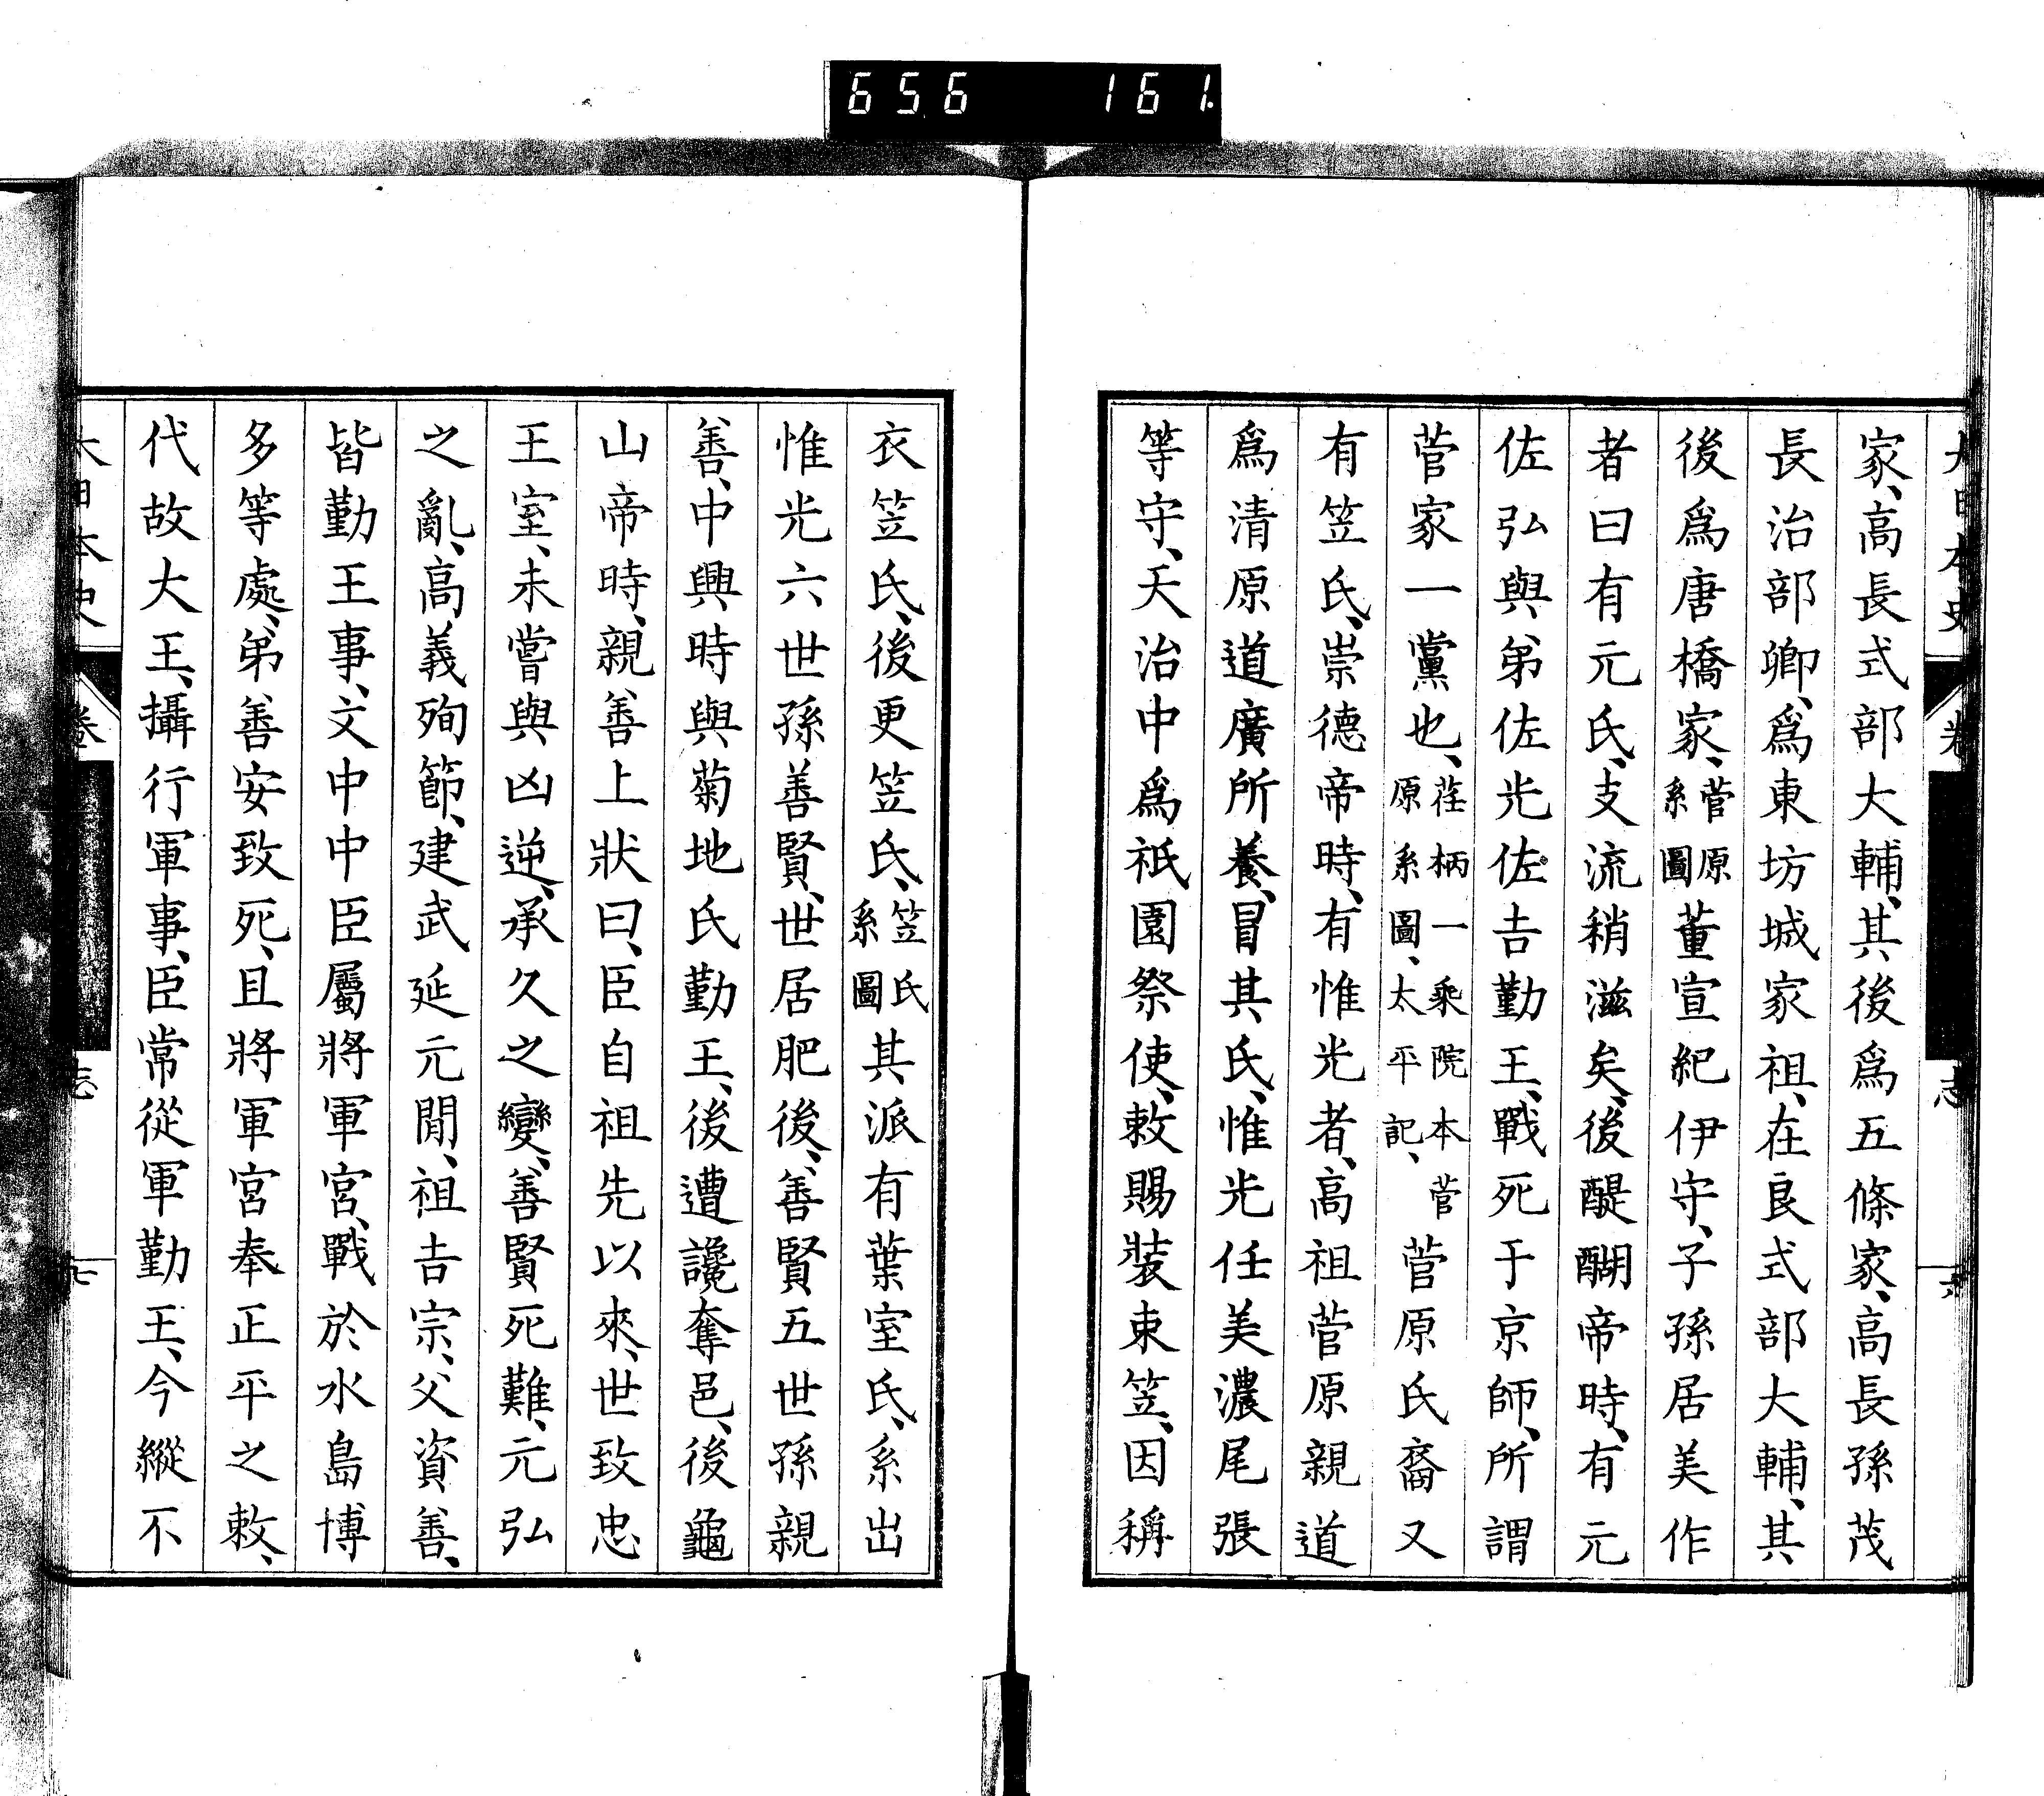 656 161
大日本史 卷 志 六
家、高長式部大輔、其後爲五條家、高長孫茂
長治部卿、爲東坊城家祖、在良式部大輔、其
後爲唐橋家、菅原系圖董宣紀伊守、子孫居美作
者曰有元氏、支流稍滋矣、後醍醐帝時、有元
佐弘與弟佐光佐吉勤王、戰死于京師、所謂
菅家一黨也、荏柄一乘院本菅原系圖、太平記、菅原氏裔又
有笠氏、崇德帝時、有惟光者、高祖菅原親道
爲清原道廣所養、冒其氏、惟光任美濃尾張
等守、天治中爲祇園祭使、敕賜裝束笠、因稱
衣笠氏、後更笠氏、笠氏系圖其派有葉室氏、系出
惟光六世孫善賢、世居肥後、善賢五世孫親
善、中興時與菊地氏勤王、後遭讒奪邑、後龜
山帝時、親善上狀曰、臣自祖先以來、世致忠
王室、未嘗與凶逆、承久之變、善賢死難、元弘
之亂、高義殉節、建武延元閒、祖吉宗、父資善、
皆勤王事、文中中臣屬將軍宮、戰於水島博
多等處、弟善安致死、且將軍宮奉正平之敕、
代故大王、攝行軍事、臣常從軍勤王、今縱不
大日本史 卷 志 七